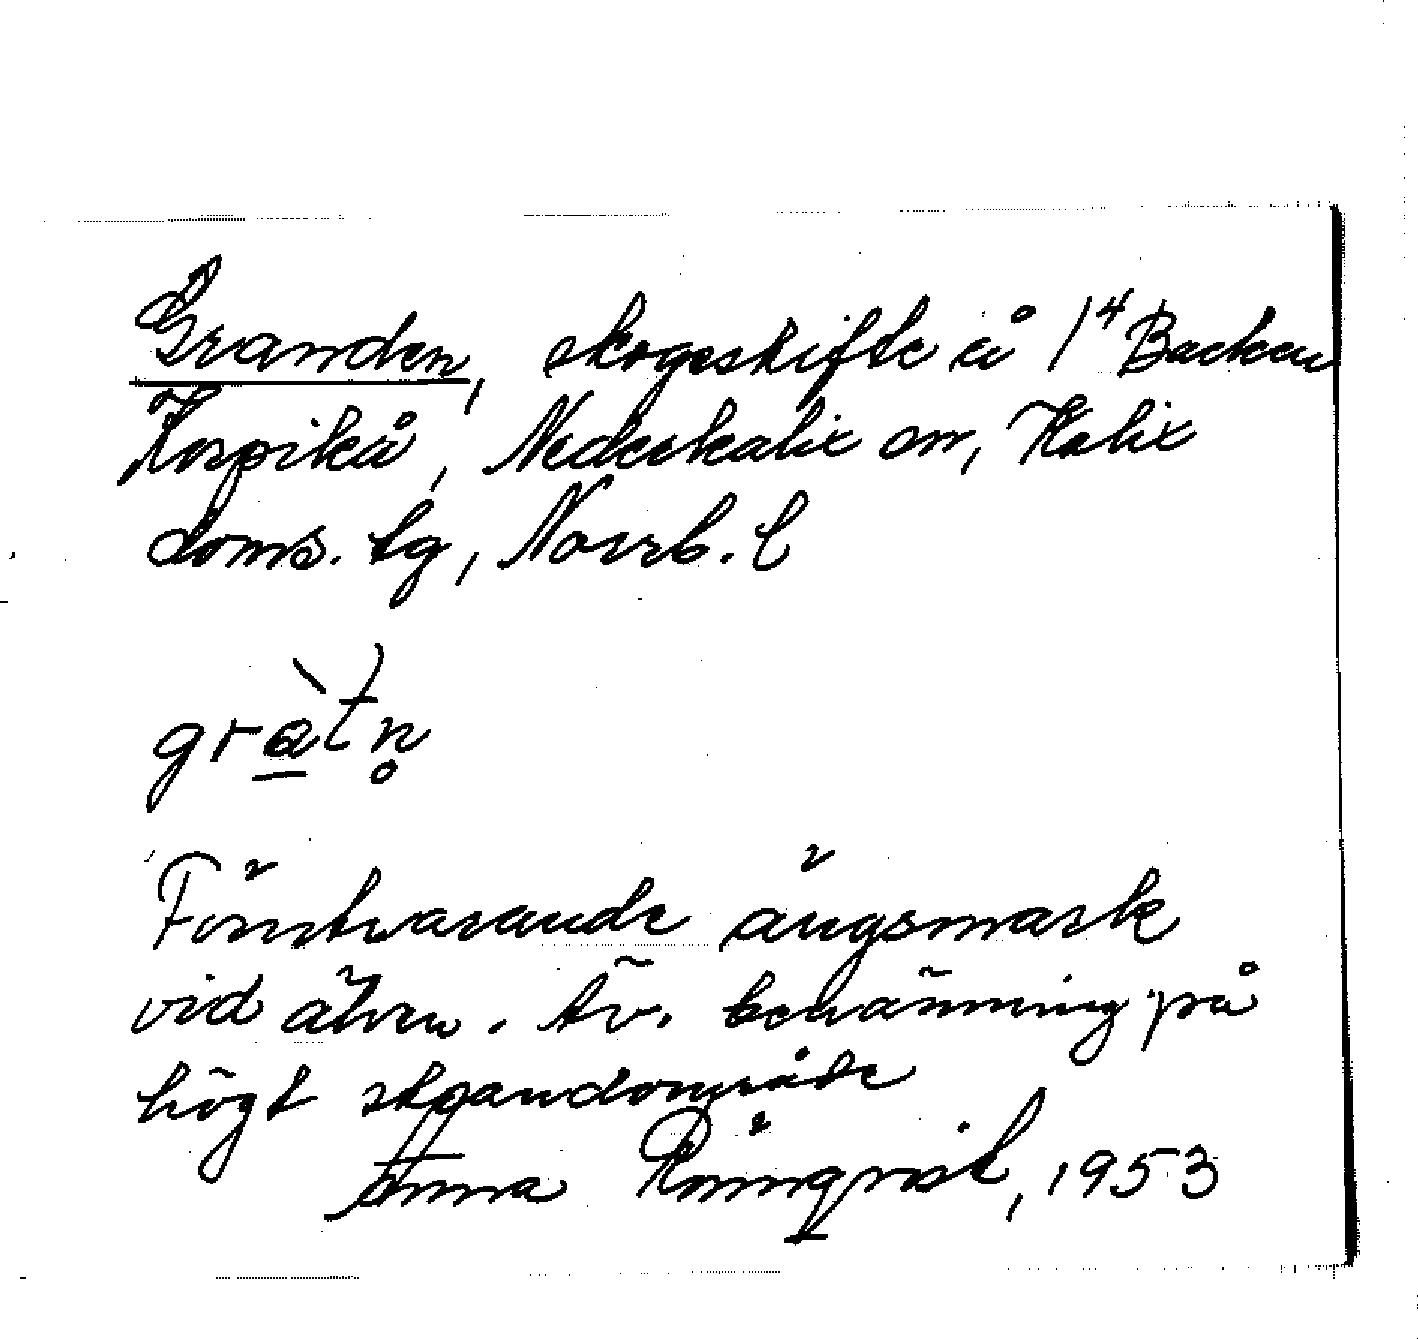 Granden, skogsskifte å 1⁴ Backen
Korpikå, Nederkalix sn, Kalix
doms. lg, Norrb. l
gràtn̥
Förutvarande ängsmark
vid älven. Äv. benämning på
högt strandområde
Anna Rönnqvist, 1953